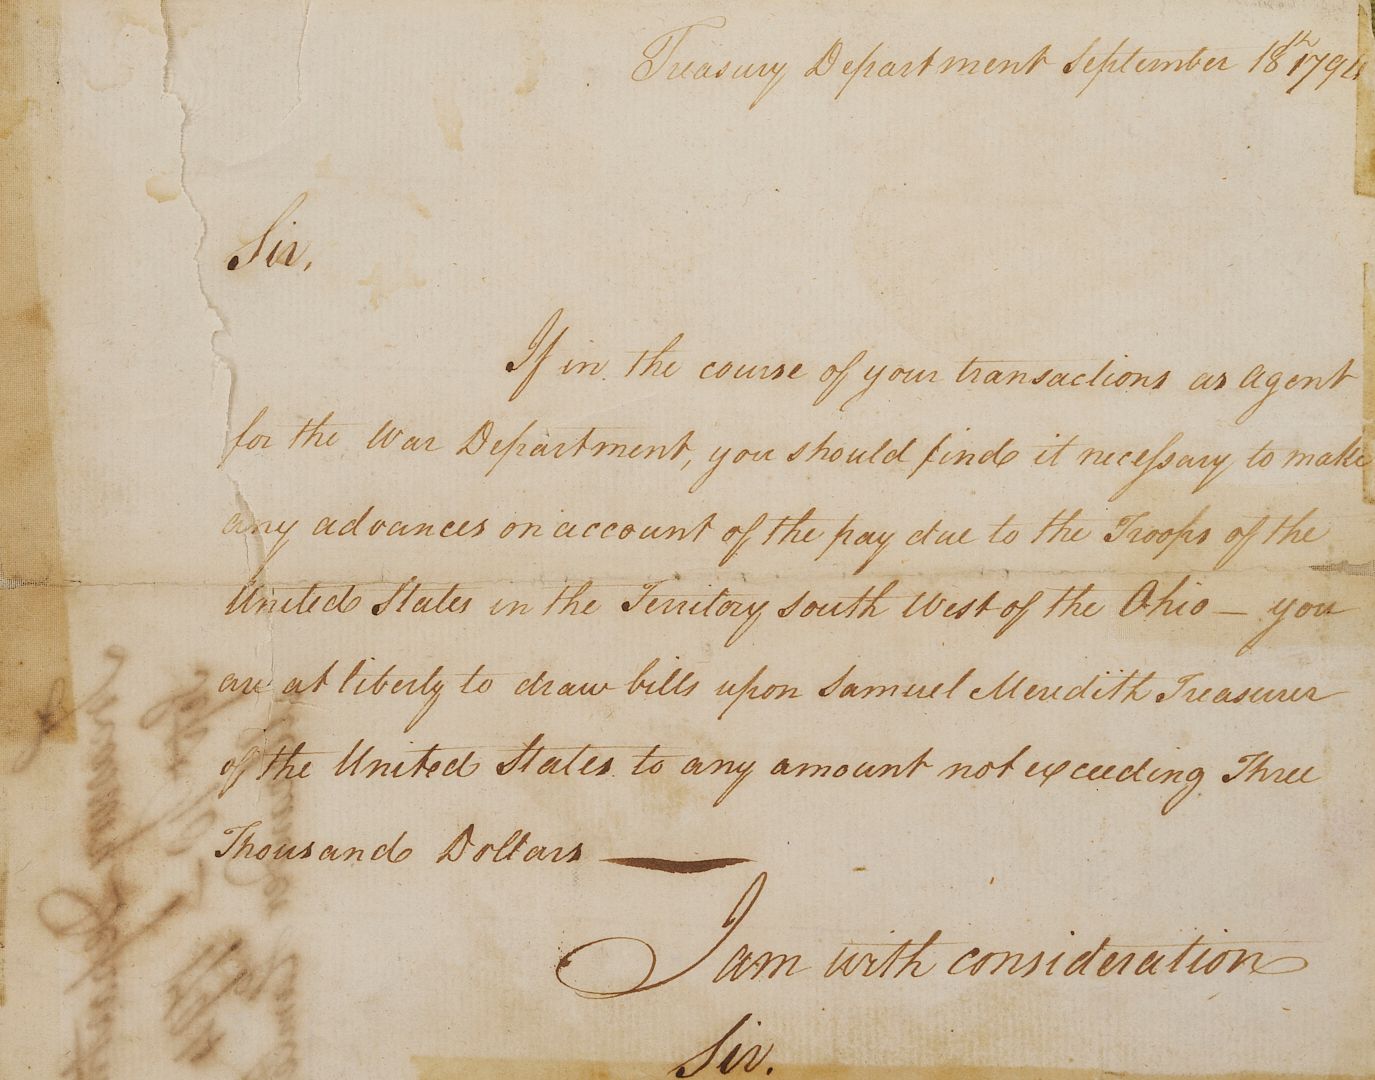 Treasury Department September 18th 1794
Sir,
If in the course of your transactions as Agent
for the War Department, you should find it necessary to make
any advances on account of the pay due to the Troops of the
United States in the Territory South West of the Ohio — you
are at liberty to draw bills upon Samuel Meredith Treasurer
of the United States to any amount not exceeding Three
Thousand Dollars —
I am with consideration
Sir.